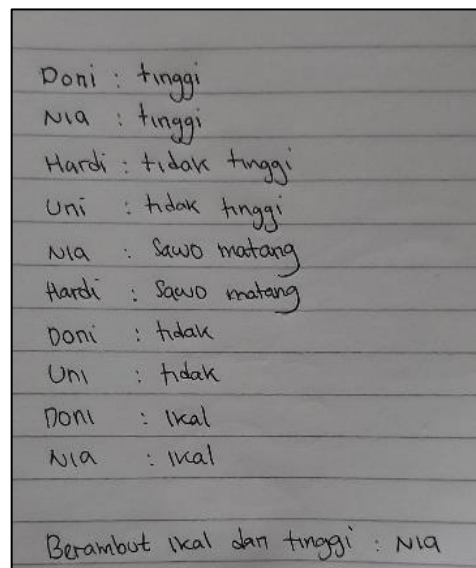 Doni : tinggi
Nia : tinggi
Hardi : tidak tinggi
Uni : tidak tinggi
Nia : Sawo matang
Hardi : Sawo matang
Doni : tidak
Uni : tidak
Doni : Ikal
Nia : Ikal
Berambut Ikal dan tinggi : Nia